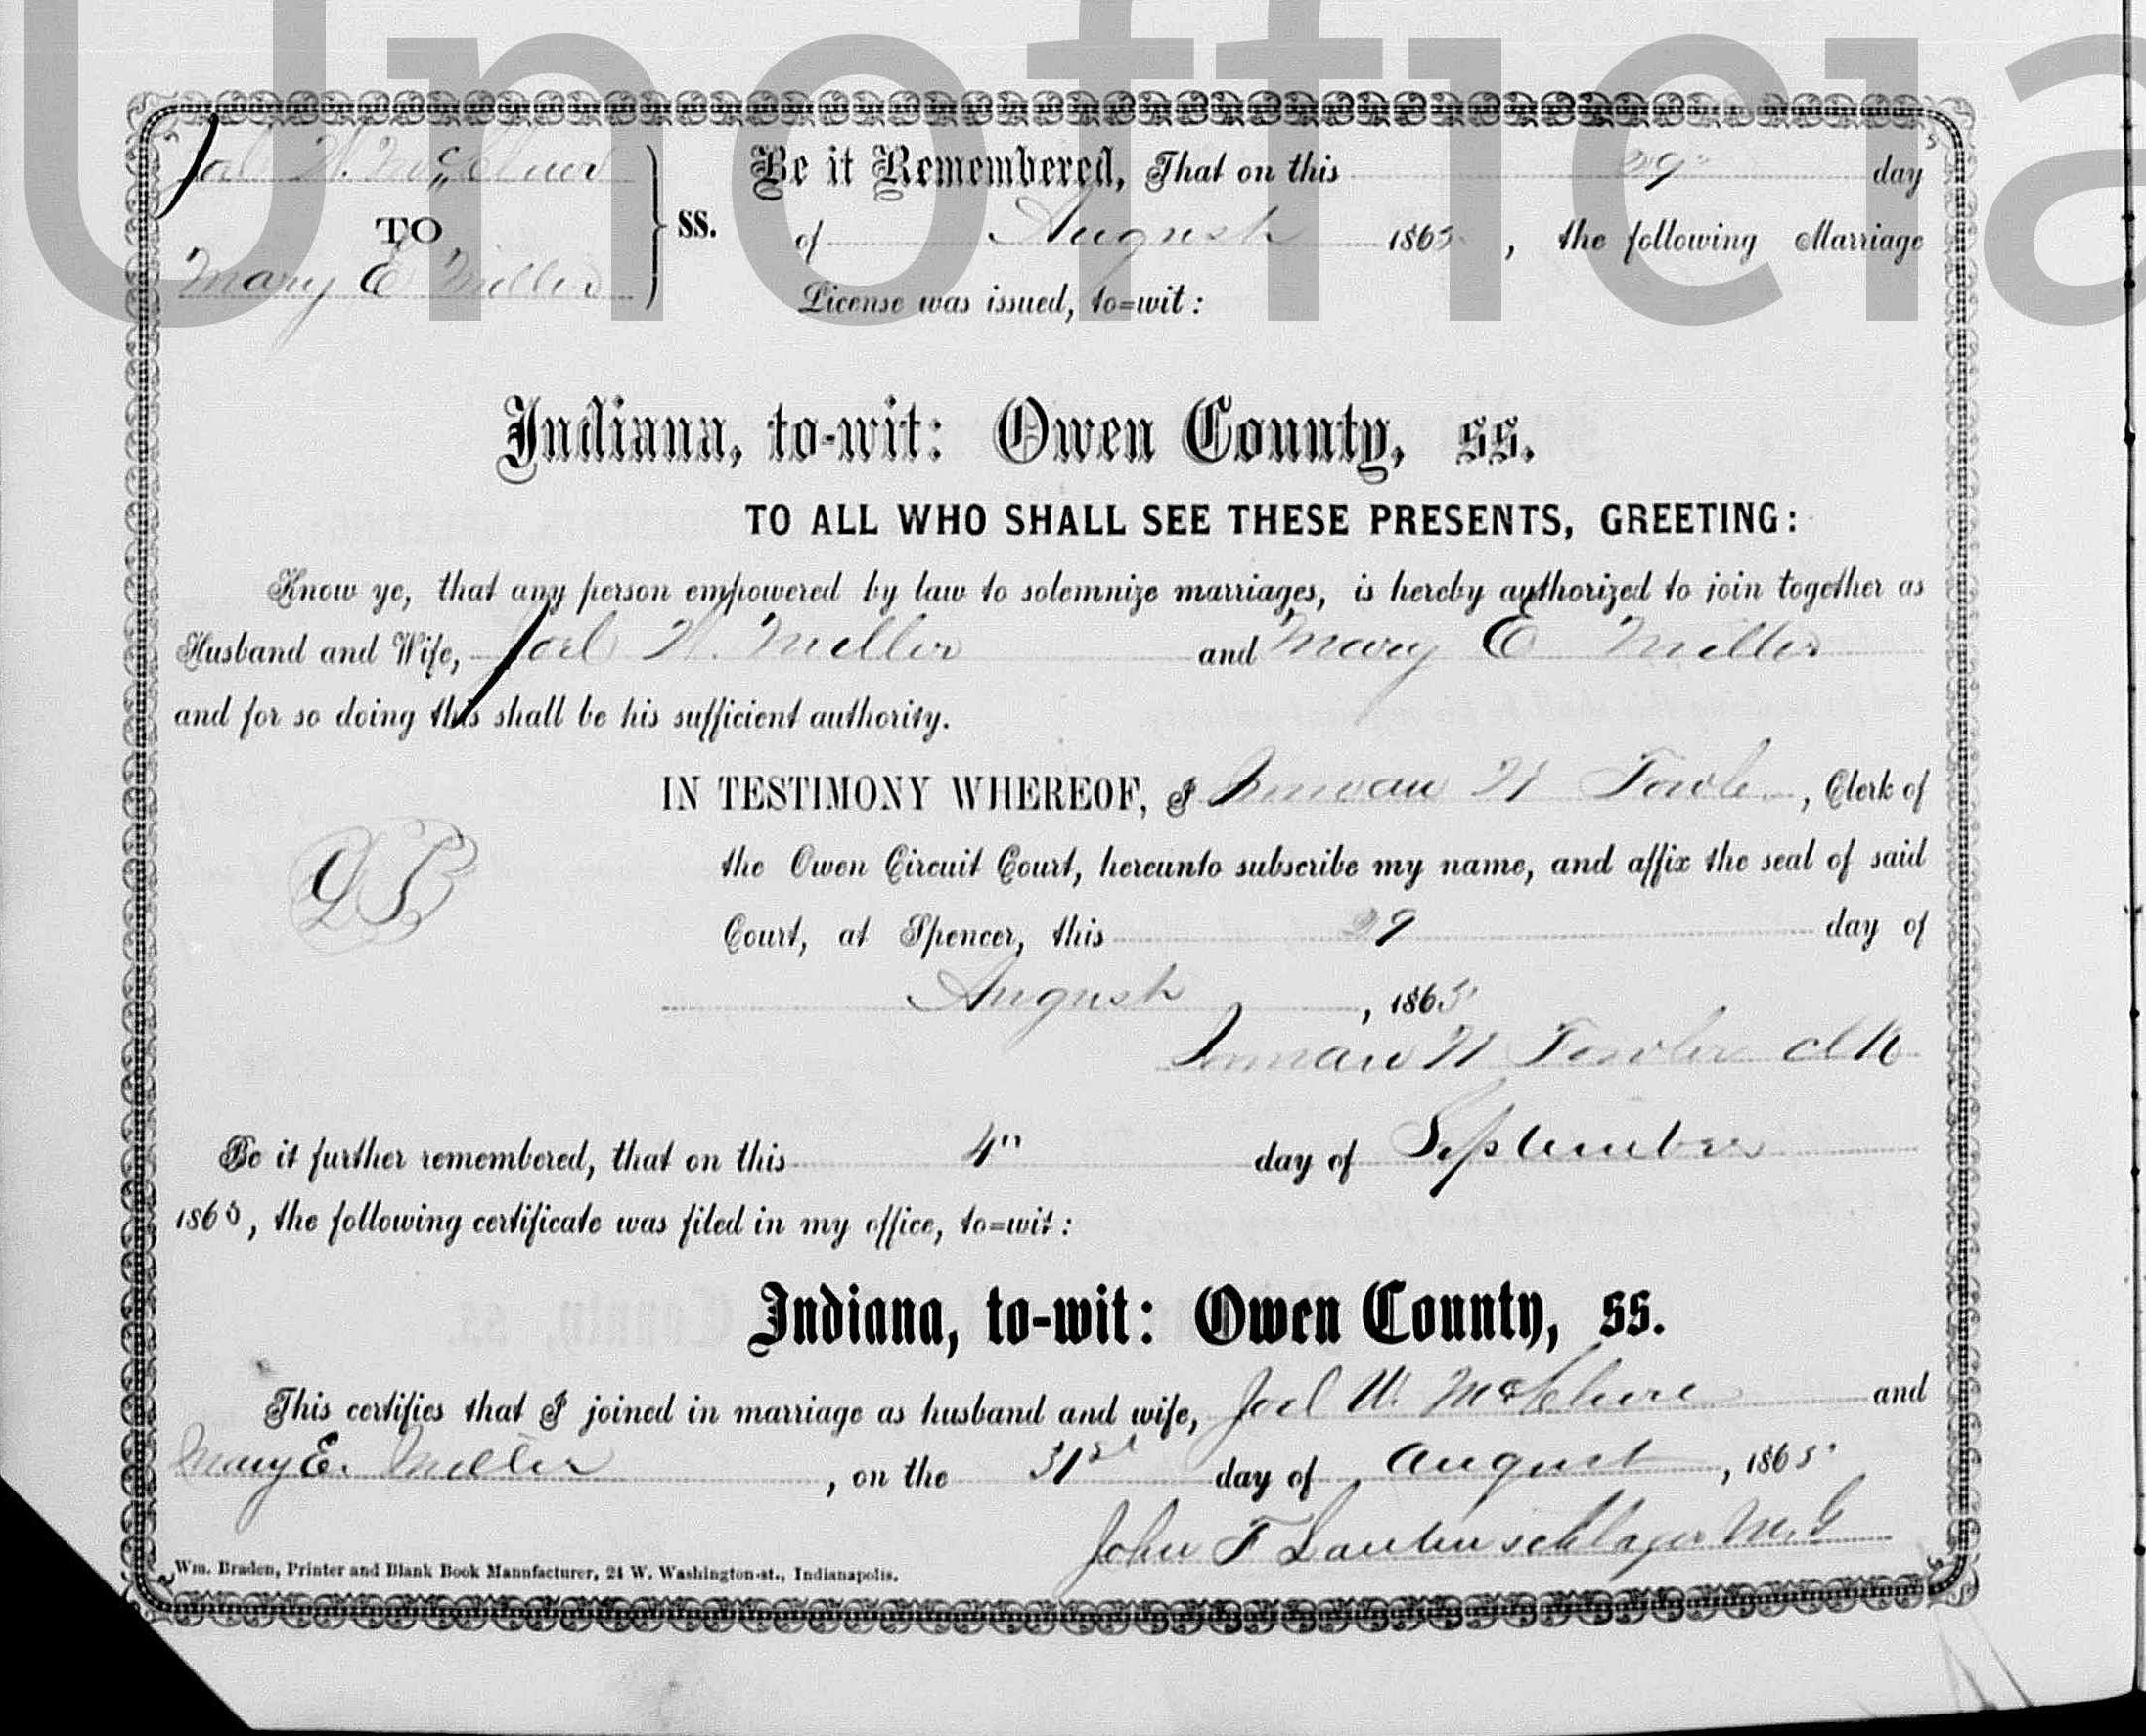 Unofficia
Joel W. McClure
TO
Mary E Miller
ss.
Be it Remembered, That on this 29" day
of August 1865, the following Marriage
License was issued, to=wit:
Indiana, to-wit: Owen County, ss.
TO ALL WHO SHALL SEE THESE PRESENTS, GREETING:
Know ye, that any person empowered by law to solemnize marriages, is hereby authorized to join together as
Husband and Wife, Joel W. Miller and Mary E Miller
and for so doing this shall be his sufficient authority.
IN TESTIMONY WHEREOF, I Inman H Fowler, Clerk of
the Owen Circuit Court, hereunto subscribe my name, and affix the seal of said
Court, at Spencer, this 29 day of
August, 1865
Inman H Fowler Clk
Be it further remembered, that on this 4" day of September
1865, the following certificate was filed in my office, to=wit:
Indiana, to-wit: Owen County, ss.
This certifies that I joined in marriage as husband and wife, Joel W. McClure and
Mary E. Miller, on the 31st day of August, 1865
John F Lautenschlager M.G
Wm. Braden, Printer and Blank Book Manufacturer, 24 W. Washington-st., Indianapolis.